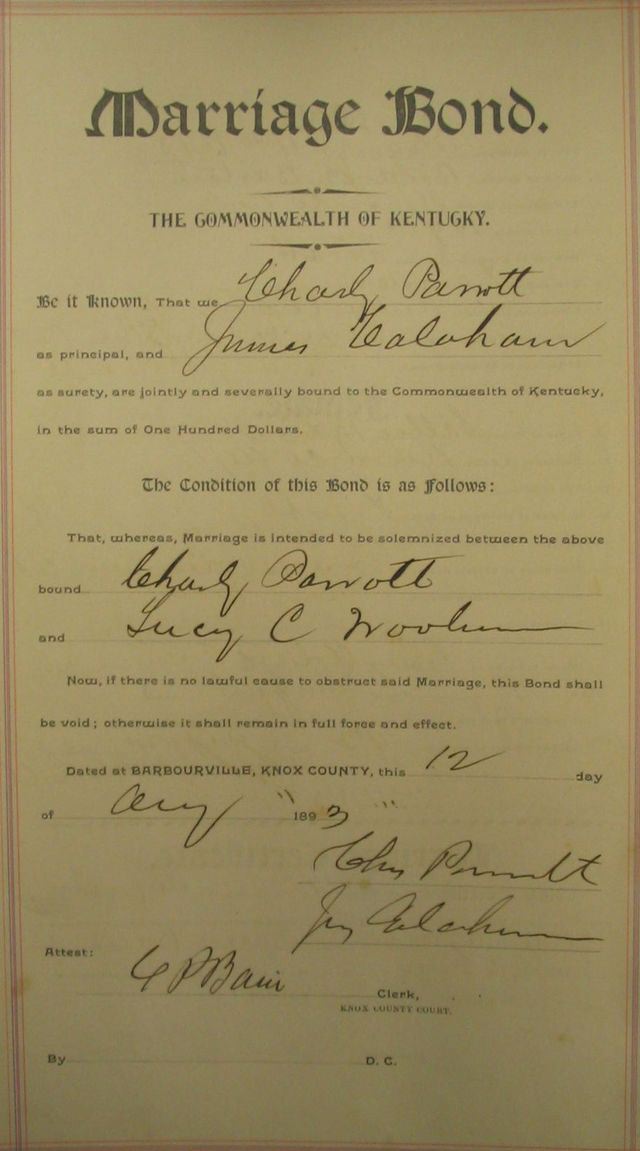 Marriage Bond.
THE COMMONWEALTH OF KENTUCKY.
Be it Known, That we Charly Parrott
as principal, and James Calahan
as surety, are jointly and severally bound to the Commonwealth of Kentucky,
in the sum of One Hundred Dollars.
The Condition of this Bond is as Follows:
That, whereas, Marriage is intended to be solemnized between the above
bound Charly Parrott
and Lucy C
Now, if there is no lawful cause to obstruct said Marriage, this Bond shall
be void; otherwise it shall remain in full force and effect.
Dated at BARBOURVILLE, KNOX COUNTY, this 12 day
of Aug " 1893 "
Chas Parrott
Calahan
Attest:
Clerk,
KNOX COUNTY COURT.
By D. C.